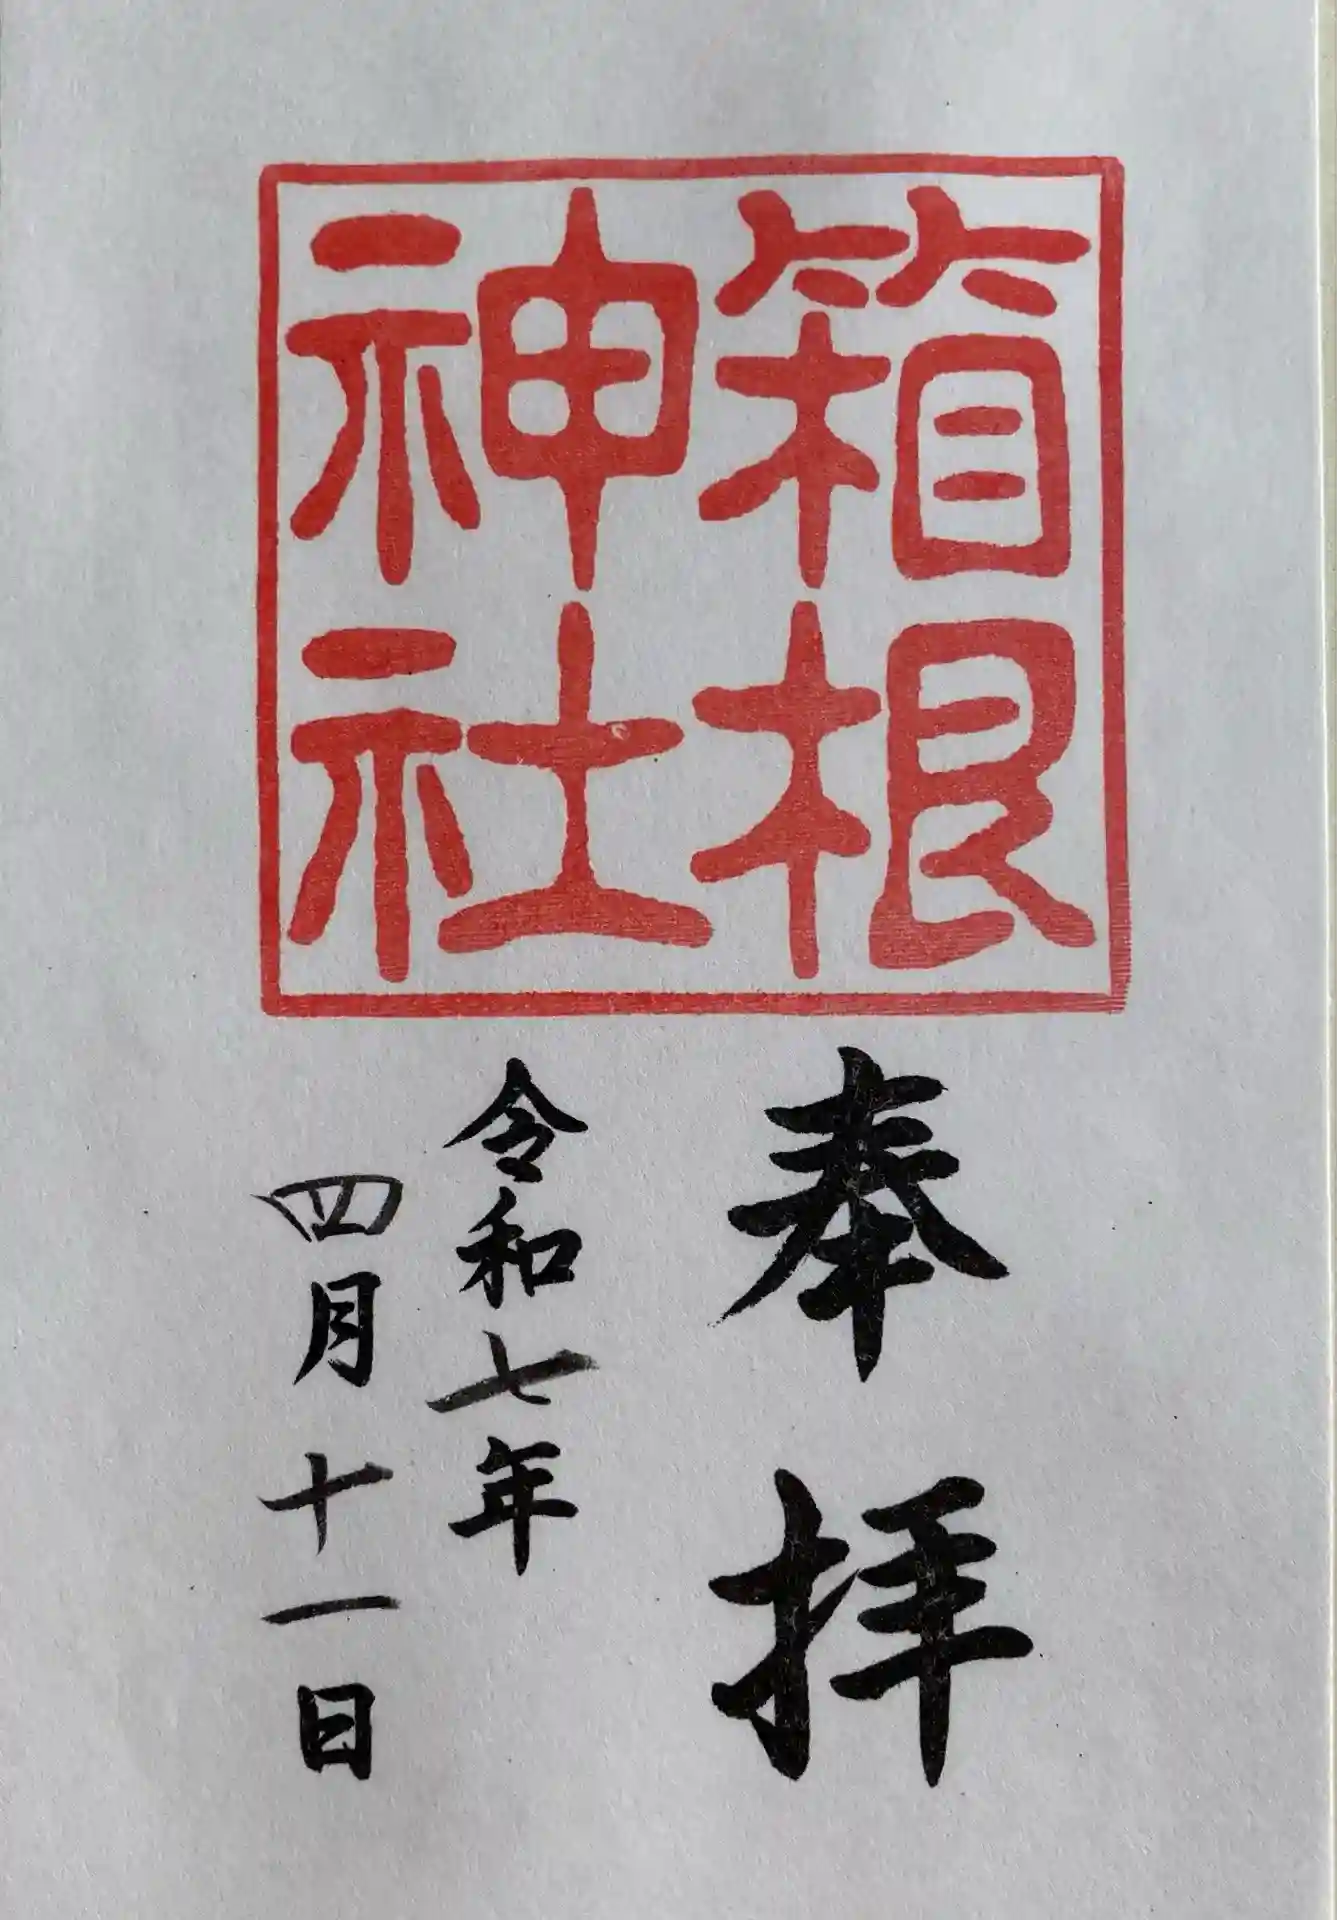 箱根
神社
奉拝
令和七年
四月十一日